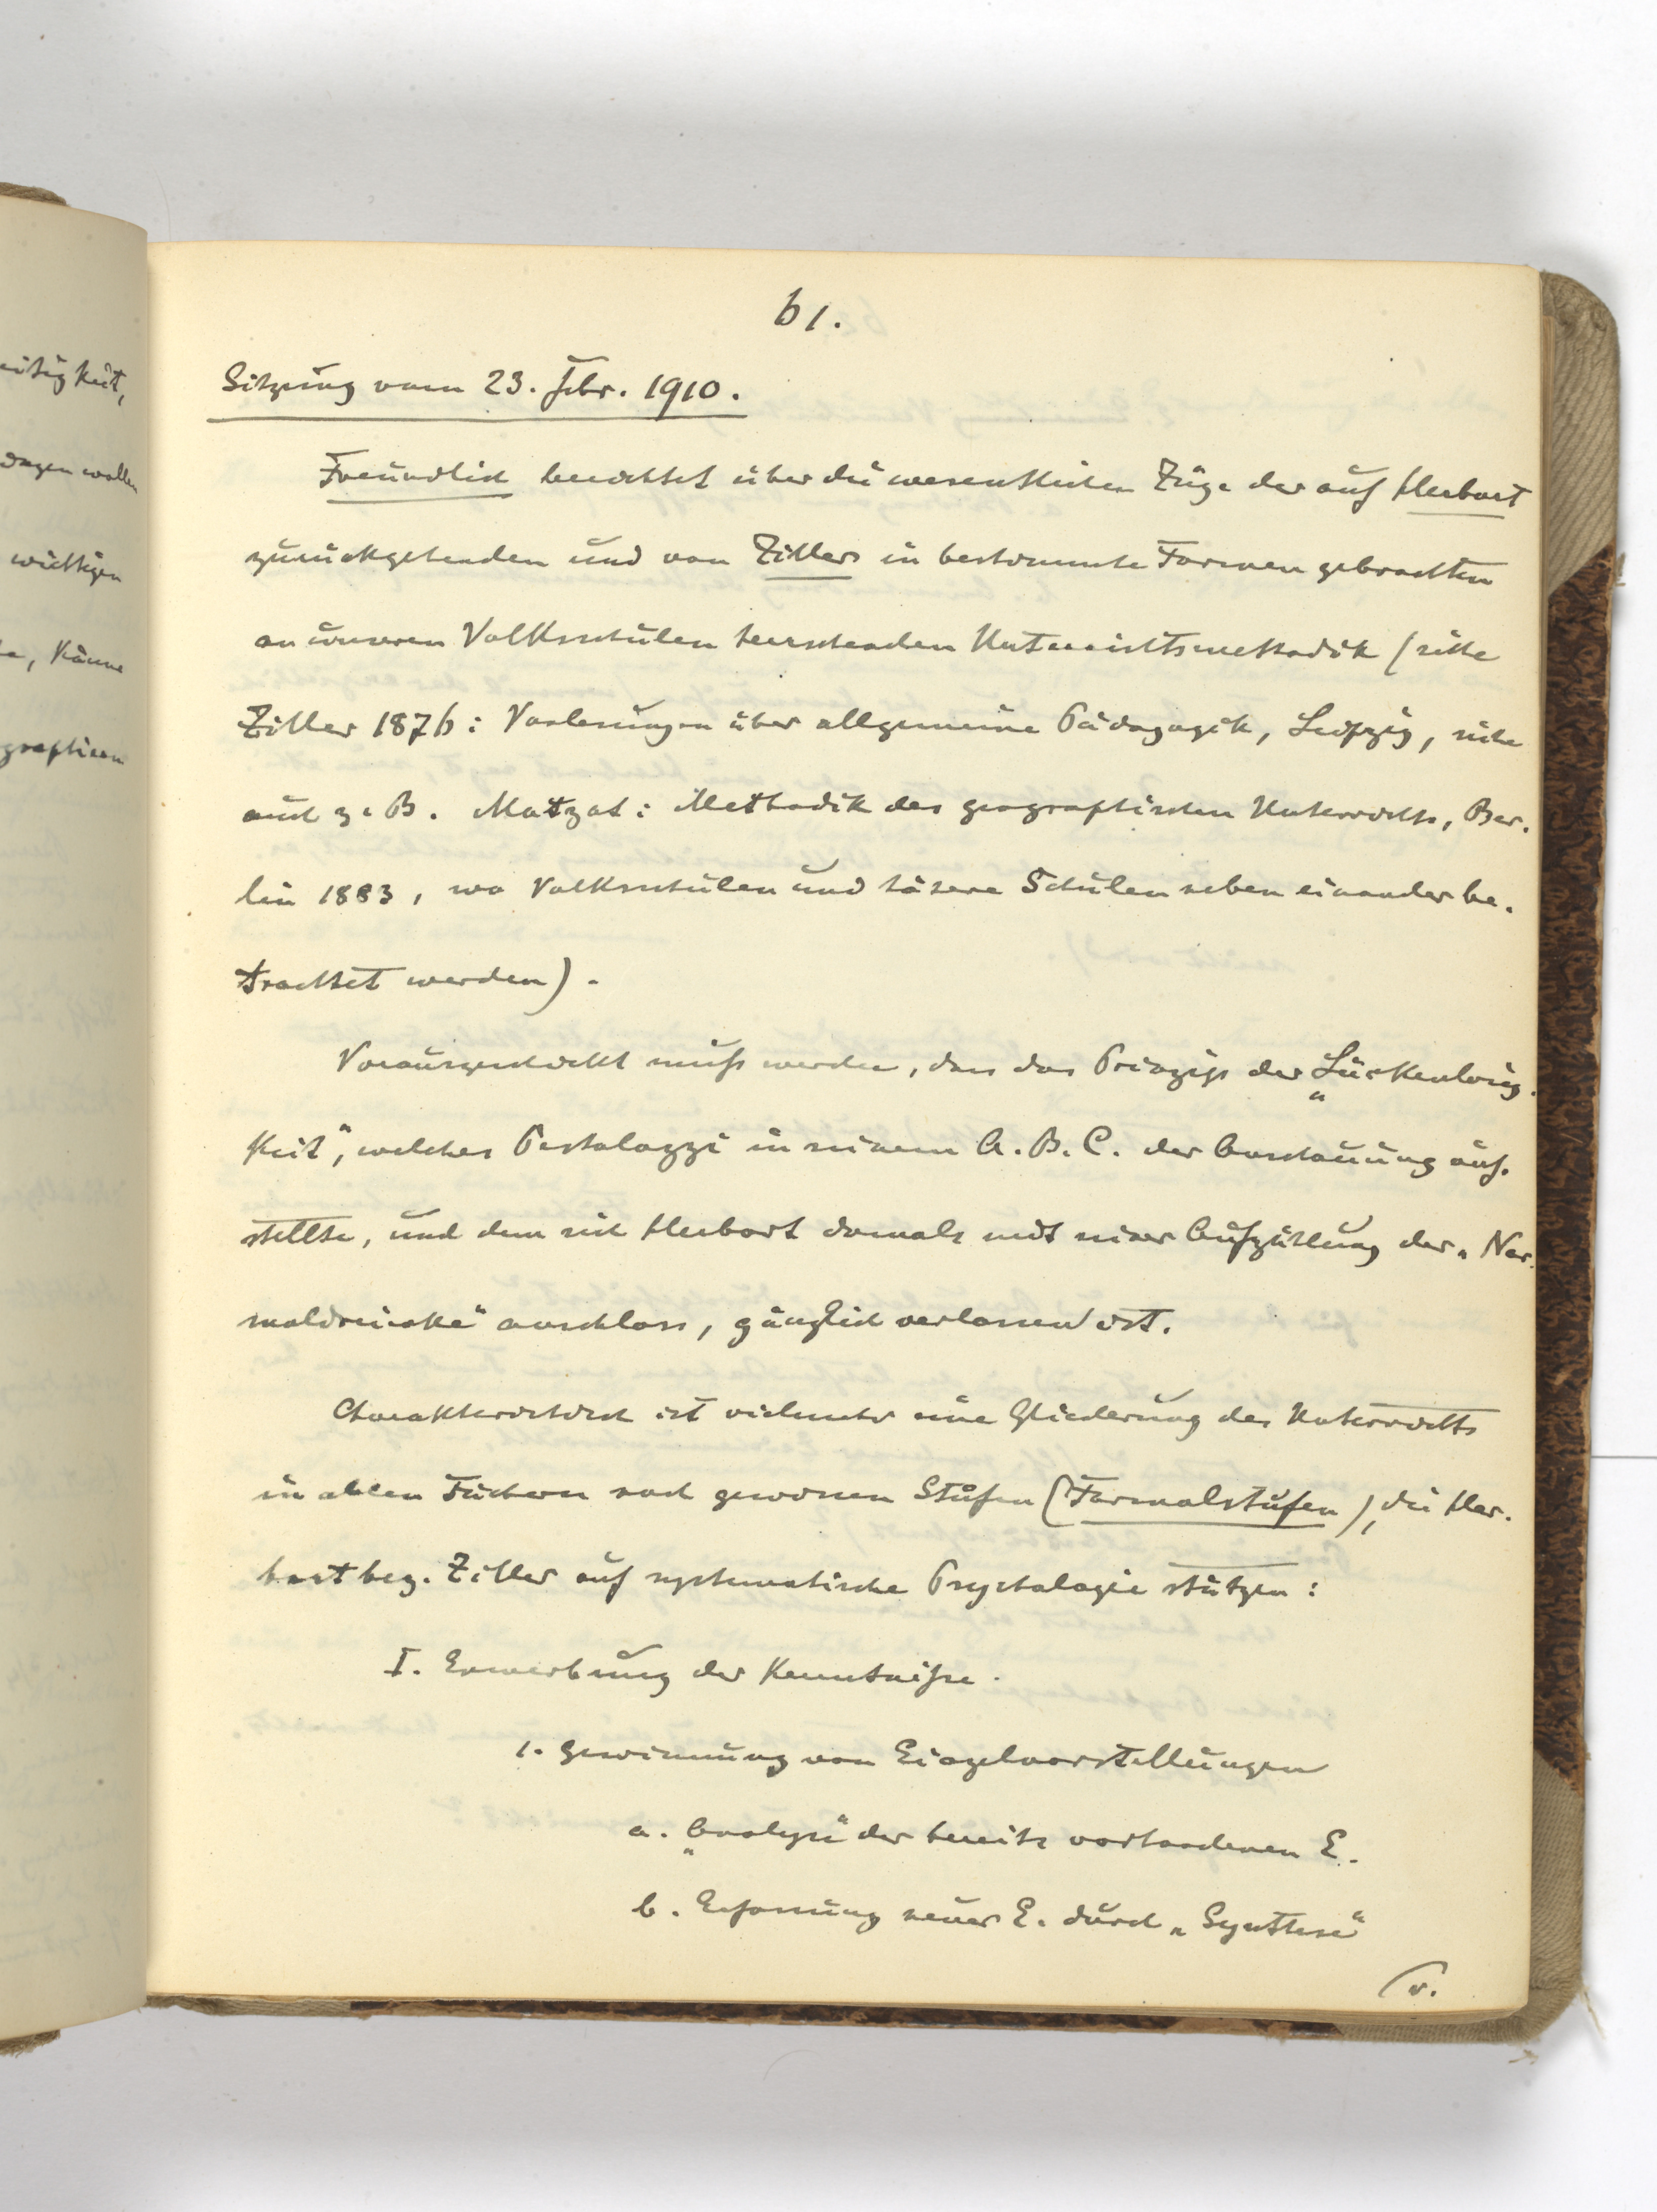 eitigkeit,
wollen
wichtigen
Känne
graphieen
61.
Sitzung vom 23. Febr. 1910.
Freundlich berichtet über die wesentlichen Züge der auf Herbart
zurückgehenden und von Ziller in bestimmte Formen gebrachten
an unseren Volksschulen herrschenden Unterrichtsmethodik (siehe
Ziller 1876: Vorlesungen über allgemeine Pädagogik, Leipzig, siehe
auch z. B. Matzat: Methodik des geographischen Unterrichts, Ber-
lin 1883, wo Volksschulen und höhere Schulen neben einander be-
trachtet werden).
Vorausgeschickt muß werden, dass das Prinzip der „Lückenlosig-
keit", welches Pestalozzi in seinem A. B. C. der Anschauung auf-
stellte, und dem sich Herbart damals mit seiner Aufzählung der „Nor-
maldreiecke" anschloss, gänzlich verlassen ist.
Charakteristisch ist vielmehr eine Gliederung des Unterrichts
in allen Fächern nach gewissen Stufen (Formalstufen), die Her-
bart bez. Ziller auf systematische Psychologie stützen:
I. Erwerbung der Kenntniße.
1. Gewinnung von Einzelvorstellungen
a. „Analyse" der bereits vorhandenen E.
b. Erfassung neuer E. durch „Synthese"
v.